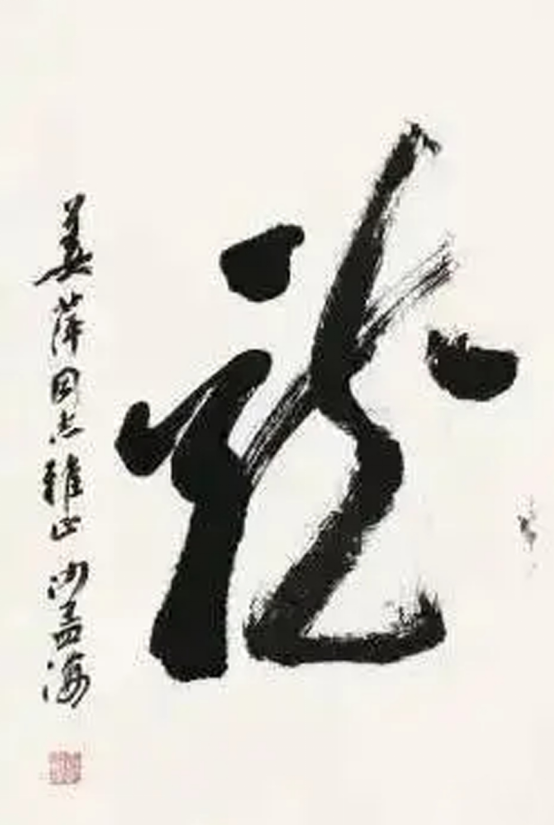 龍
姜萍同志雅正 沙孟海